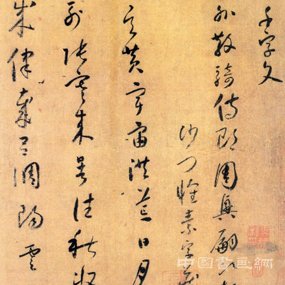 千字文
外散騎侍郎周興嗣
沙門懷素字藏
玄黃宇宙洪荒日月
列張寒來暑往秋收
成律歲呂調陽雲